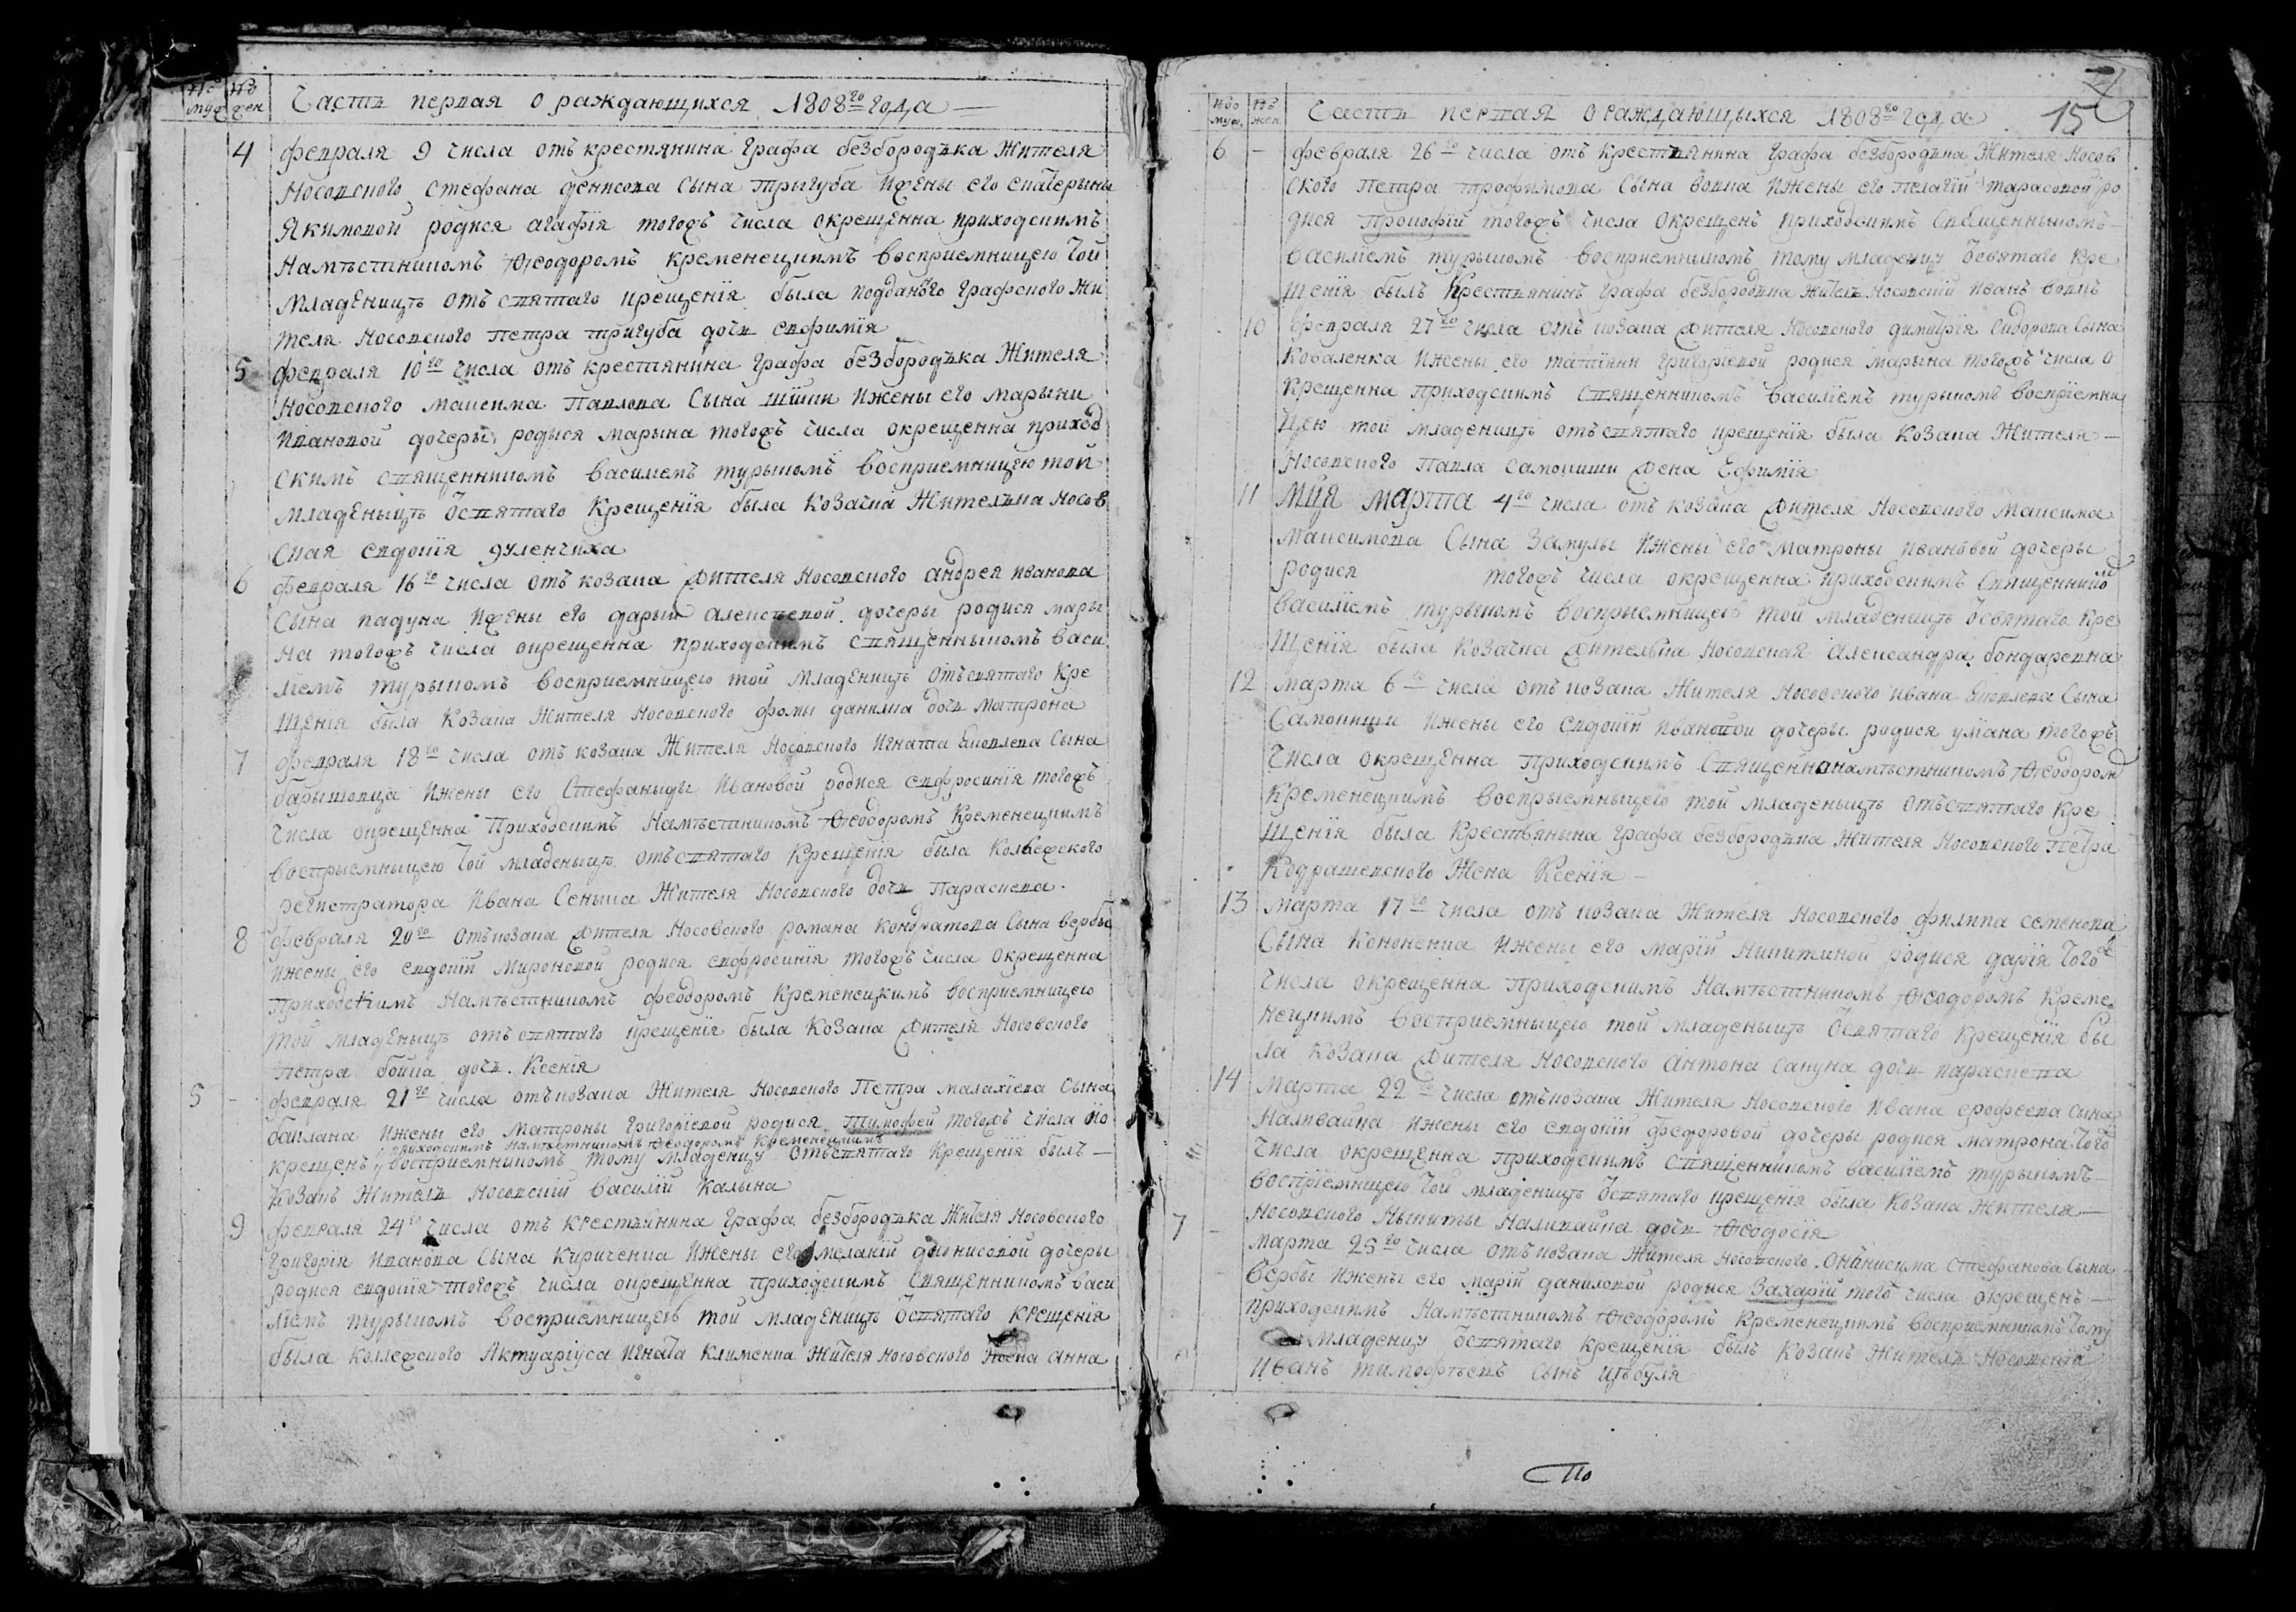 Часть первая о раждающихся 1808го года
4 февраля 9 числа отъ крестянина Графа безбородъка Жителя
Носовского Стефана денисова Сына Трыгуба ижены его Екатерыны
Якимовой родися агафія тогожъ числа окрещенна приходскимъ
Намѣстникомъ Ѳеодоромъ кременецкимъ восприемницею той
Младеницѣ отъ святаго крещенія была подданого Графского Жи
теля Носовского Петра тригуба дочь Евфимія
5 февраля 10го числа отъ крестянина Графа безбородъка Жителя
Носовского Максима Павлова Сына шишки ижены его Марыни
Ивановой дочеры родыся Марына тогожъ числа окрещенна приход
скимъ священникомъ василиемъ турыномъ восприемницею той
младеныцѣ ѿсвятаго крещенія была козачка Жителька Носов
ская Евдокія дуленчиха
6 февраля 16го числа отъ козака Жителя Носовского андрея иванова
Сына падуна ижены его дарыи алексѣевой дочеры родися Мары
на тогожъ числа окрещенна приходскимъ священныкомъ васи
ліемъ турыномъ восприемницею той Младеницѣ отъсвятаго Кре
щенія была Козака Жителя Носовского фомы данилка дочь Матрона
7 февраля 18го числа отъ козака Жителя Носовского Игната Яковлева Сына
барышовца ижены его Стефаныды Ивановой родися евфросинія тогожъ
числа окрещенна Приходскимъ Намѣстникомъ Ѳеодоромъ Кременецкимъ
восприемныцею той младеныцѣ отъсвятаго Крещенія была Колежского
регистратора Ивана Сенька Жителя Носовского дочь Параскева.
8 февраля 20го отъкозака Жителя Носовского романа Кондратова Сына вербы
ижены его евдокіи Мироновой родися евфросинія тогожъ числа окрещенна
Приходскимъ Намѣстныкомъ феодоромъ Кременецкимъ восприемницею
той младеныцѣ отъ святаго крещенія была Козака Жителя Носовского
Петра бойка дочь. Ксенія
5 - февраля 21го числа отъкозака Жителя Носовского Петра малахіева Сына
баклана ижены его Матроны Григоріевой родися Тимофей тогожъ числа ѿо
приходскимъ Намѣстникомъ Ѳеодоромъ Кременецкимъ
крещенъ восприемникомъ тому младенцу отъсвятаго Крещенія былъ —
козакъ Житель Носовскій василій Калына
9 февраля 24го числа отъ крестьянина Графа безбородъка Жителя Носовского
Григорія Иванова Сына Кириченка ижены его Меланіи дионисовой дочеры
родися евдокія тогожъ числа окрещенна приходскимъ Священникомъ васи
ліемъ турыномъ восприемницею той младеницѣ ѿсвятаго крещенія
была коллежского Актуаріуса Игната Клименка Жителя Носовского Жена анна
15
Часть первая о раждающыхся 1808го года
6 - февраля 26го числа отъ крестьянина Графа безбородька Жителя Носов
ского Петра трофимова Сына вовка ижены его Пелагіи тарасовой ро
дися Прокофій тогожъ числа окрещенъ приходскимъ Священныкомъ —
василіемъ турыномъ восприемныкомъ тому младенцу ѿсвятаго Кре
щенія былъ Крестьянинъ Графа безбородька Житель Носовскій Иванъ вовкъ
10 Февраля 27го числа отъ козака Жителя Носовского димитрія Сидорова Сына
Коваленка ижены его татіяни Григоріевой родися марына тогожъ числа о
крещенна приходскимъ священникомъ василіемъ турыномъ воспріемни
цею той младеницѣ отъсвятаго крещенія была Козака Жителя —
Носовского Павла Самокиши Жена Ефимія
11 Мця Марта 4го числа отъ козака Жителя Носовского Максима
Максимова Сына Замулы ижены его Матроны Ивановой дочеры
родися тогожъ числа окрещенна приходскимъ Священнико
василіемъ турыномъ восприемницею той младеницѣ ѿсвятаго Кре
щенія была Козачка Жителька Носовская Александра бондаревна
12 Марта 6го числа отъ козака Жителя Носовского ивана Яковлева Сына
Самокиши ижены его Евдокіи ивановой дочеры родися уліана тогожъ
числа окрещенна приходскимъ Священнонамѣстникомъ Ѳеодором
Кременецкимъ восприемныцею той младеныцѣ отъсвятаго Кре
щенія была Крестьянына Графа безбородька Жителя Носовского Петра
Кѣдрашевского Жена Ксенія —
13 Марта 17го числа отъ козака Жителя Носовского филипа семенова
Сына Кононенка ижены его Маріи Никитиной родися дарія того
числа окрещенна приходскимъ Намѣстникомъ Ѳеодоромъ Креме
нецкимъ восприемныцею той младеныцѣ ѿсвятаго Крещенія бы
ла Козака Жителя Носовского Антона Сапуна дочь параскева
14 Марта 22го числа отъкозака Жителя Носовского Ивана ерофеева Сына
Наливайка ижены его евдокіи федоровой дочеры родися матрона того
числа окрещенна приходскимъ священникомъ василіемъ турыномъ —
воспріемницею той младеницѣ ѿсвятаго крещенія была Козака Жителя —
Носовского Ныкиты Наливайка дочь Ѳеодосія
7 - Марта 25го числа отъкозака Жителя Носовского Онанисима Стефанова Сына
вербы ижены его Маріи даниловой родися Захарій того числа окрещенъ —
приходскимъ Намѣстникомъ Ѳеодоромъ Кременецкимъ восприемникомъ тому
младенцу ѿсвятаго крещенія былъ Козакъ Житель Носовскій
Иванъ тимофѣевъ Сынъ Цѣбуля
По